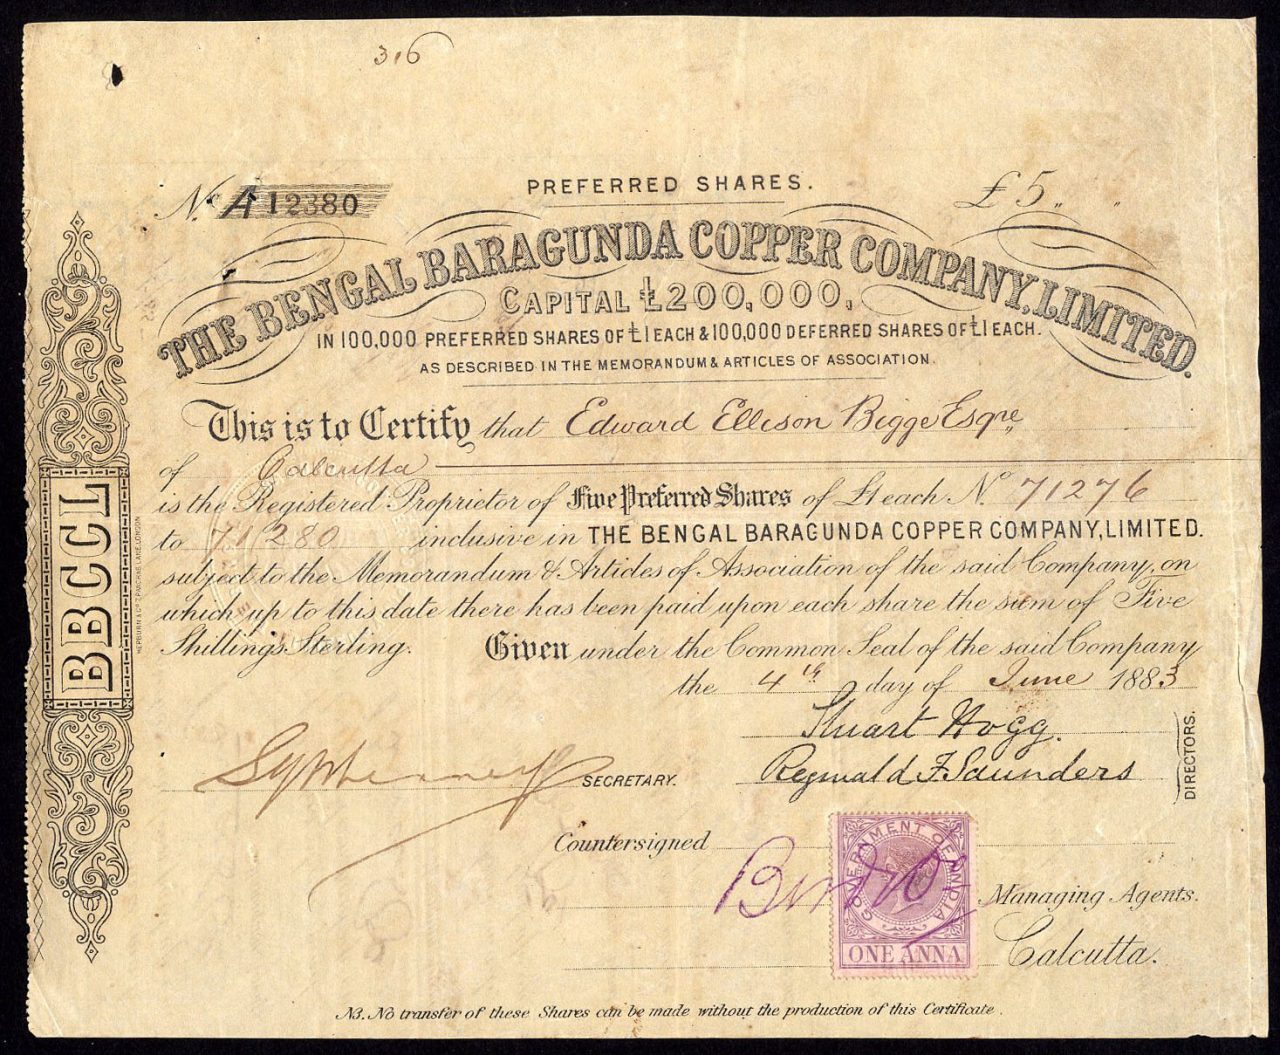 316
PREFERRED SHARES.
No. A 12380
£5 „ „
THE BENGAL BARAGUNDA COPPER COMPANY, LIMITED.
CAPITAL £200,000,
IN 100,000 PREFERRED SHARES OF £1 EACH & 100,000 DEFERRED SHARES OF £1 EACH.
AS DESCRIBED IN THE MEMORANDUM & ARTICLES OF ASSOCIATION.
This is to Certify that Edward Ellison Bigge Esqre
of Calcutta
is the Registered Proprietor of Five Preferred Shares of £1 each No. 71276
to 71280 inclusive in THE BENGAL BARAGUNDA COPPER COMPANY, LIMITED.
subject to the Memorandum & Articles of Association of the said Company, on
which up to this date there has been paid upon each share the sum of Five
Shillings Sterling. Given under the Common Seal of the said Company
the 4th day of June 1883
Stuart Hogg.
Reginald F. Saunders
DIRECTORS.
SECRETARY.
Countersigned
GOVERNMENT OF INDIA
ONE ANNA
Managing Agents.
Calcutta.
NB. No transfer of these Shares can be made without the production of this Certificate.
BBCCL